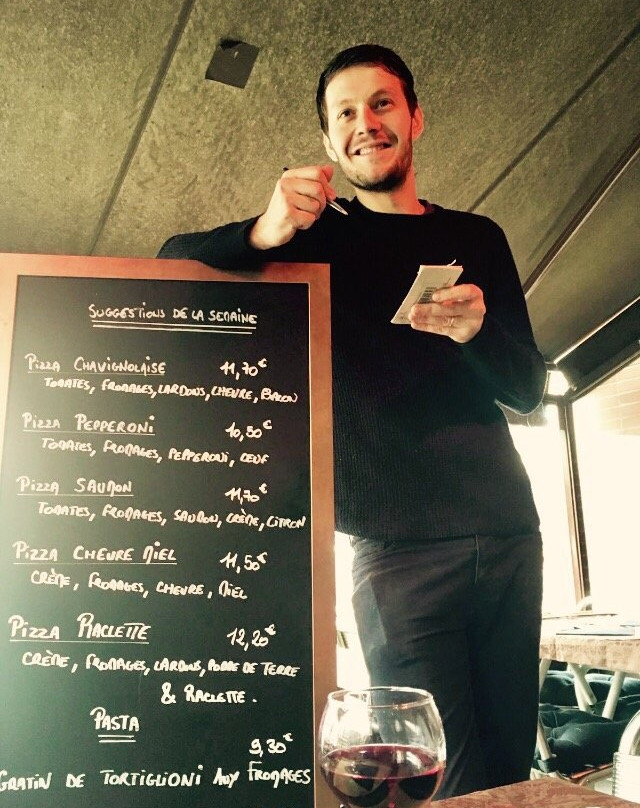 SUGGESTIONS DE LA SEMAINE
PIZZA CHAVIGNOLAISE 11,70€
TOMATES, FROMAGES, LARDONS, CHEVRE, BACON
PIZZA PEPPERONI 10,50€
TOMATES, FROMAGES, PEPPERONI, OEUF
PIZZA SAUMON 11,70€
TOMATES, FROMAGES, SAUMON, CRÈME, CITRON
PIZZA CHEVRE MIEL 11,50€
CRÈME, FROMAGES, CHEVRE, MIEL
PIZZA RACLETTE 12,20€
CRÈME, FROMAGES, LARDONS, POMME DE TERRE
& RACLETTE.
PASTA
9,30€
GRATIN DE TORTIGLIONI AUX FROMAGES